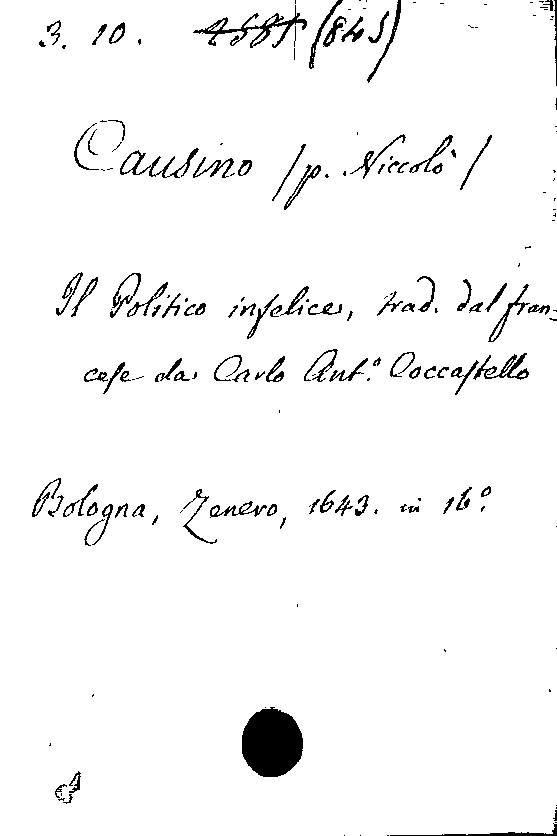 3. 10. 4585 (845)
Causino /p. Niccolò/
Il Politico infelice, trad. dal fran=
cese da Carlo Ant.º Coccastello
Bologna, Zenero, 1643. in 16.º